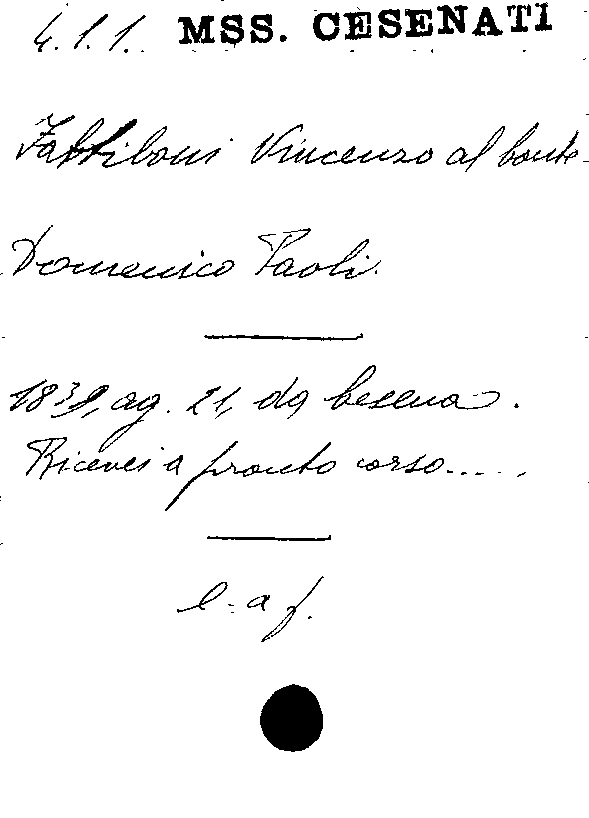 4.1.1. MSS. CESENATI
Fattiboni Vincenzo al Conte
Domenico Paoli.
1839, ag. 21, da Cesena.
Ricevei a pronto corso.....
l. a f.